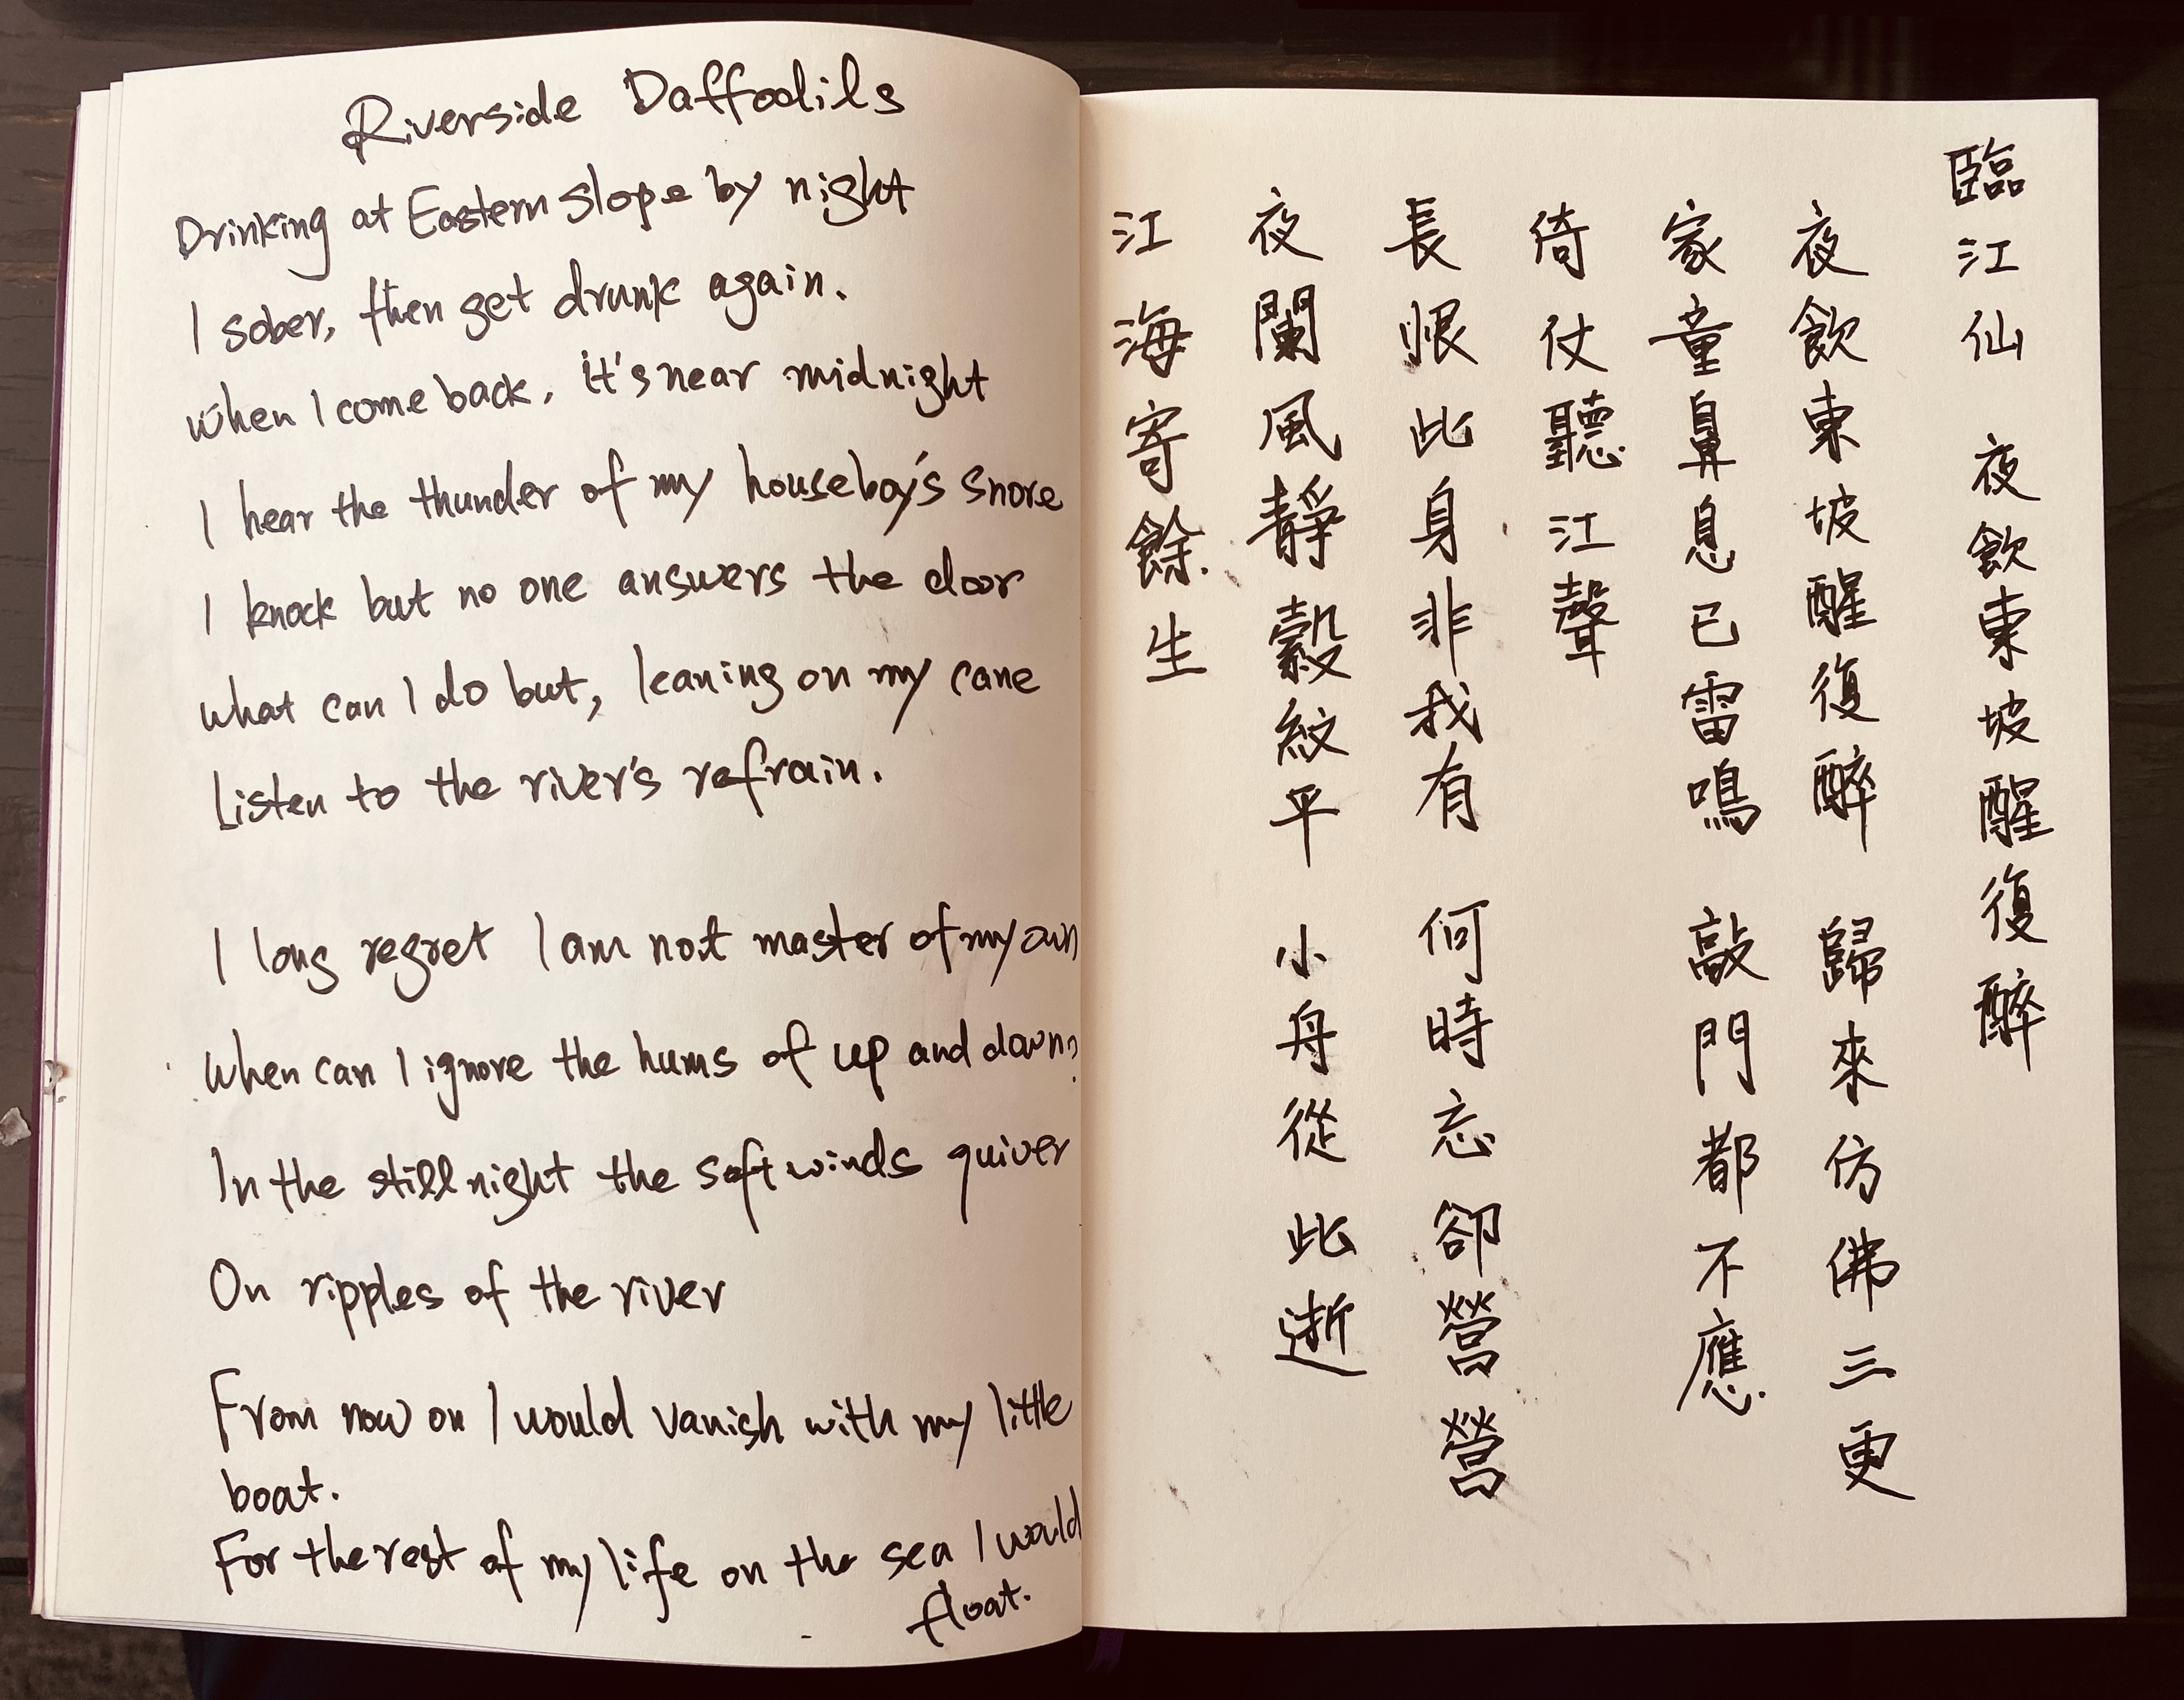 Riverside Daffodils
Drinking at Eastern Slope by night
I sober, then get drunk again.
When I come back, it's near midnight
I hear the thunder of my houseboy's snore
I knock but no one answers the door
What can I do but, leaning on my cane
Listen to the river's refrain.
I long regret I am not master of my own
When can I ignore the hums of up and down?
In the still night the soft winds quiver
On ripples of the river
From now on I would vanish with my little
boat.
For the rest of my life on the sea I would
float.
臨江仙 夜飲東坡醒復醉
夜飲東坡醒復醉 歸來仿佛三更
家童鼻息已雷鳴 敲門都不應
倚仗聽江聲
長恨此身非我有 何時忘卻營營
夜闌風靜縠紋平 小舟從此逝
江海寄餘生